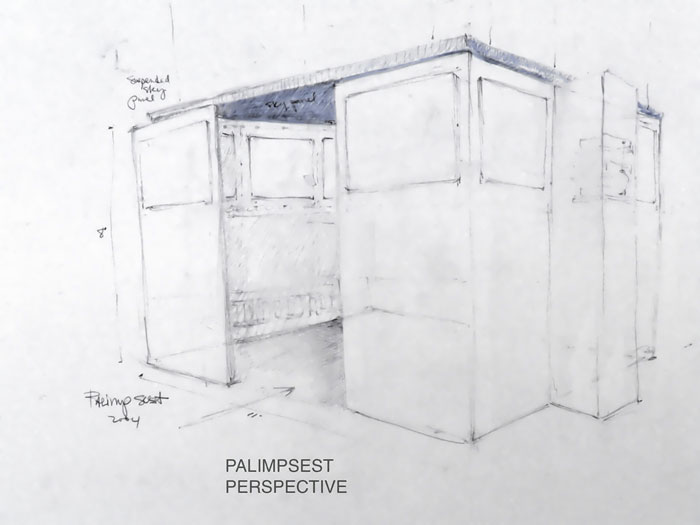 Suspended
sky
panel
sky panel
8'
2004
PALIMPSEST
PERSPECTIVE